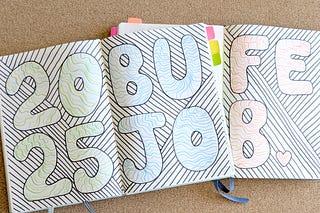 20
25
BU
JO
FE
B